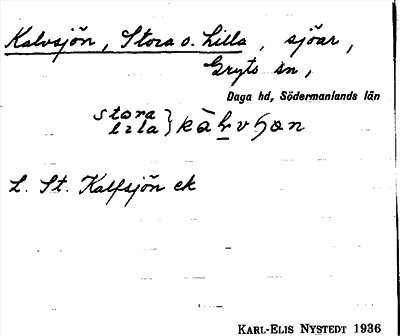 Kalvsjön, Stora o. Lilla, sjöar,
Gryts sn,
Daga hd, Södermanlands län
stora
lila } kàɫvꞕɷn
L. St. Kalfsjön ek
KARL-ELIS NYSTEDT 1936